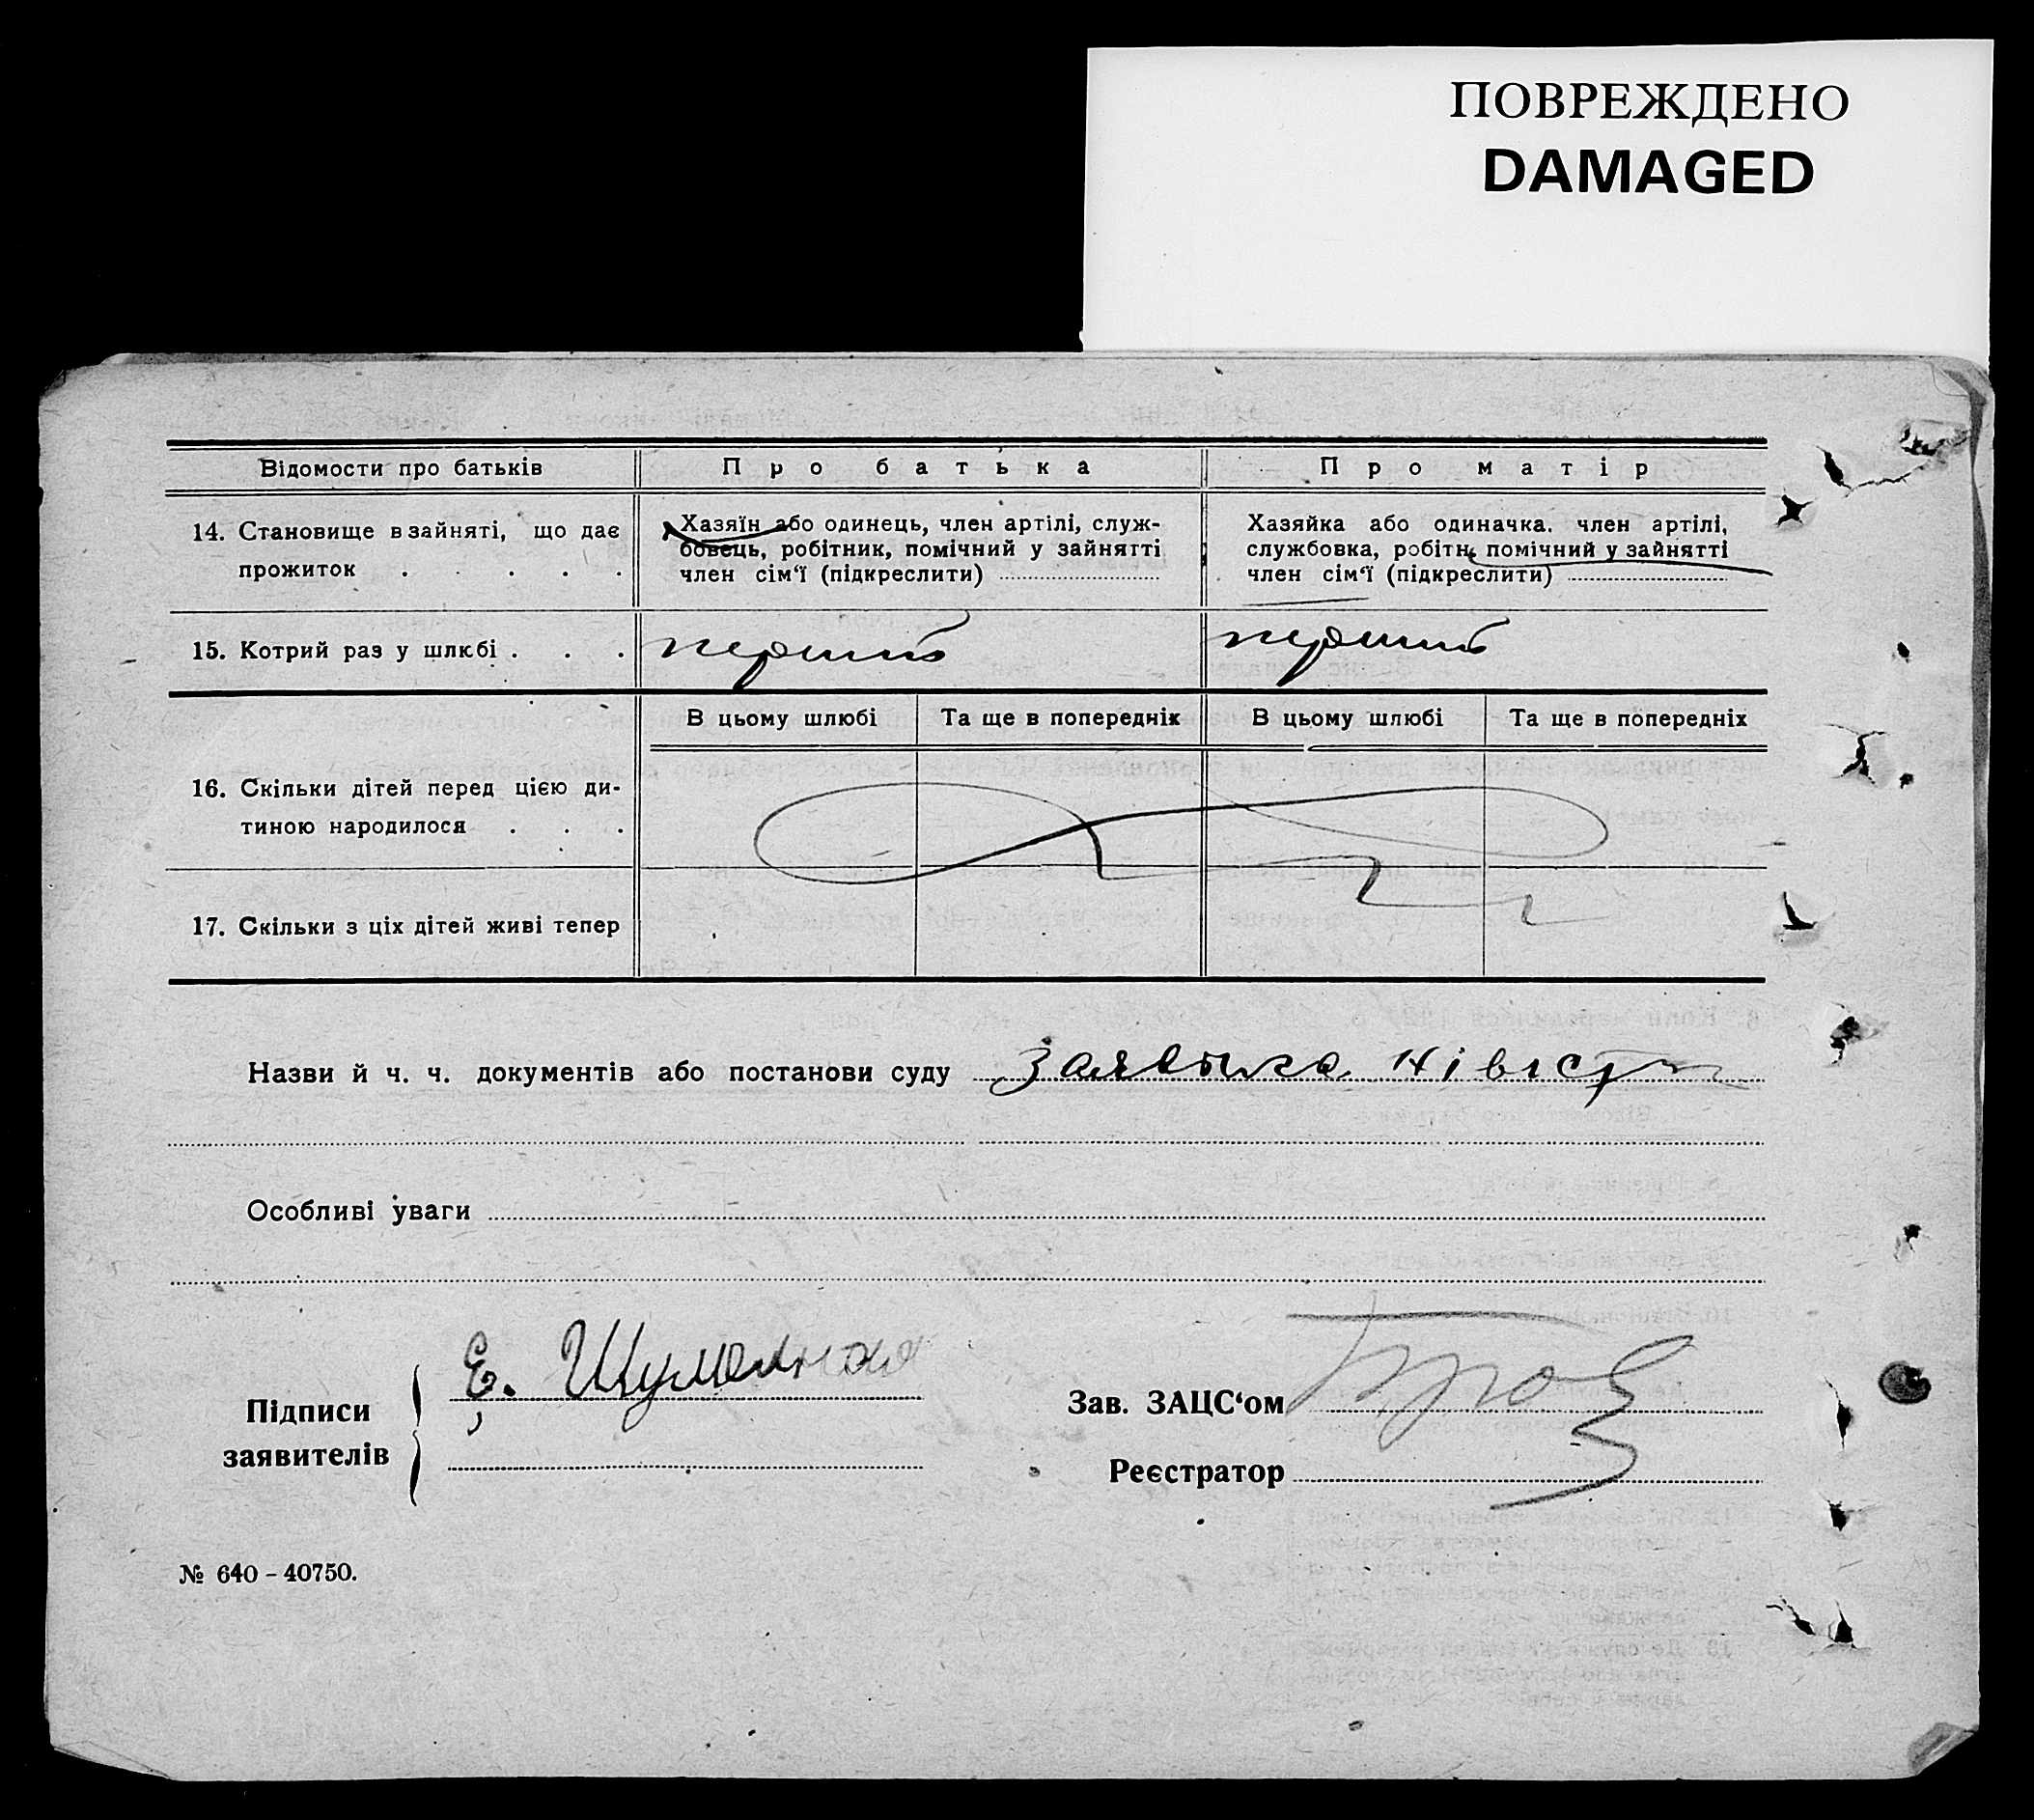 ПОВРЕЖДЕНО
DAMAGED
Відомости про батьків
Про батька
Про матір
14. Становище в зайняті, що дає
прожиток . . . . .
Хазяїн або одинець, член артілі, служ-
бовець, робітник, помічний у зайнятті
член сім‘ї (підкреслити)
Хазяйка або одиначка. член артілі,
службовка, робітн. помічний у зайнятті
член сім‘ї (підкреслити)
15. Котрий раз у шлюбі . . .
перший
перший
В цьому шлюбі
Та ще в попередніх
В цьому шлюбі
Та ще в попередніх
16. Скільки дітей перед цією ди-
тиною народилося . . .
17. Скільки з ціх дітей живі тепер
Назви й ч. ч. документів або постанови суду
Особливі уваги
Підписи
заявителів
Е.
Зав. ЗАЦС‘ом
Реєстратор
№ 640-40750.